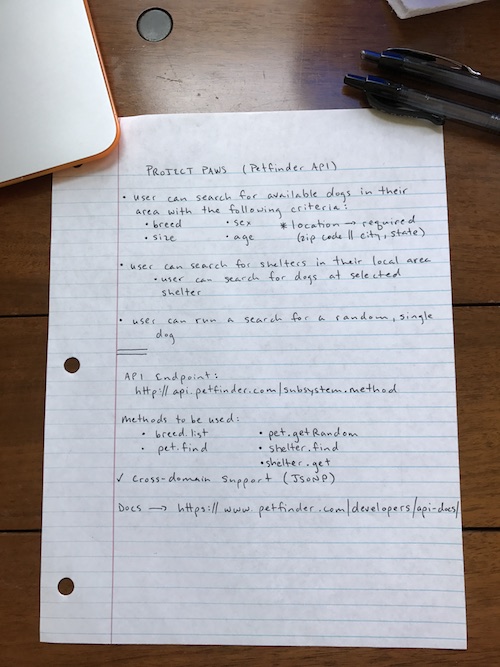 PROJECT PAWS (Petfinder API)
• user can search for available dogs in their
area with the following criteria:
• breed • sex * location → required
• size • age (zip code || city, state)
• user can search for shelters in their local area
• user can search for dogs at selected
shelter
• user can run a search for a random, single
dog
API Endpoint:
http://api.petfinder.com/subsystem.method
methods to be used:
• breed.list • pet.getRandom
• pet.find • shelter.find
• shelter.get
✓ Cross-domain support (JSONP)
Docs → https://www.petfinder.com/developers/api-docs/